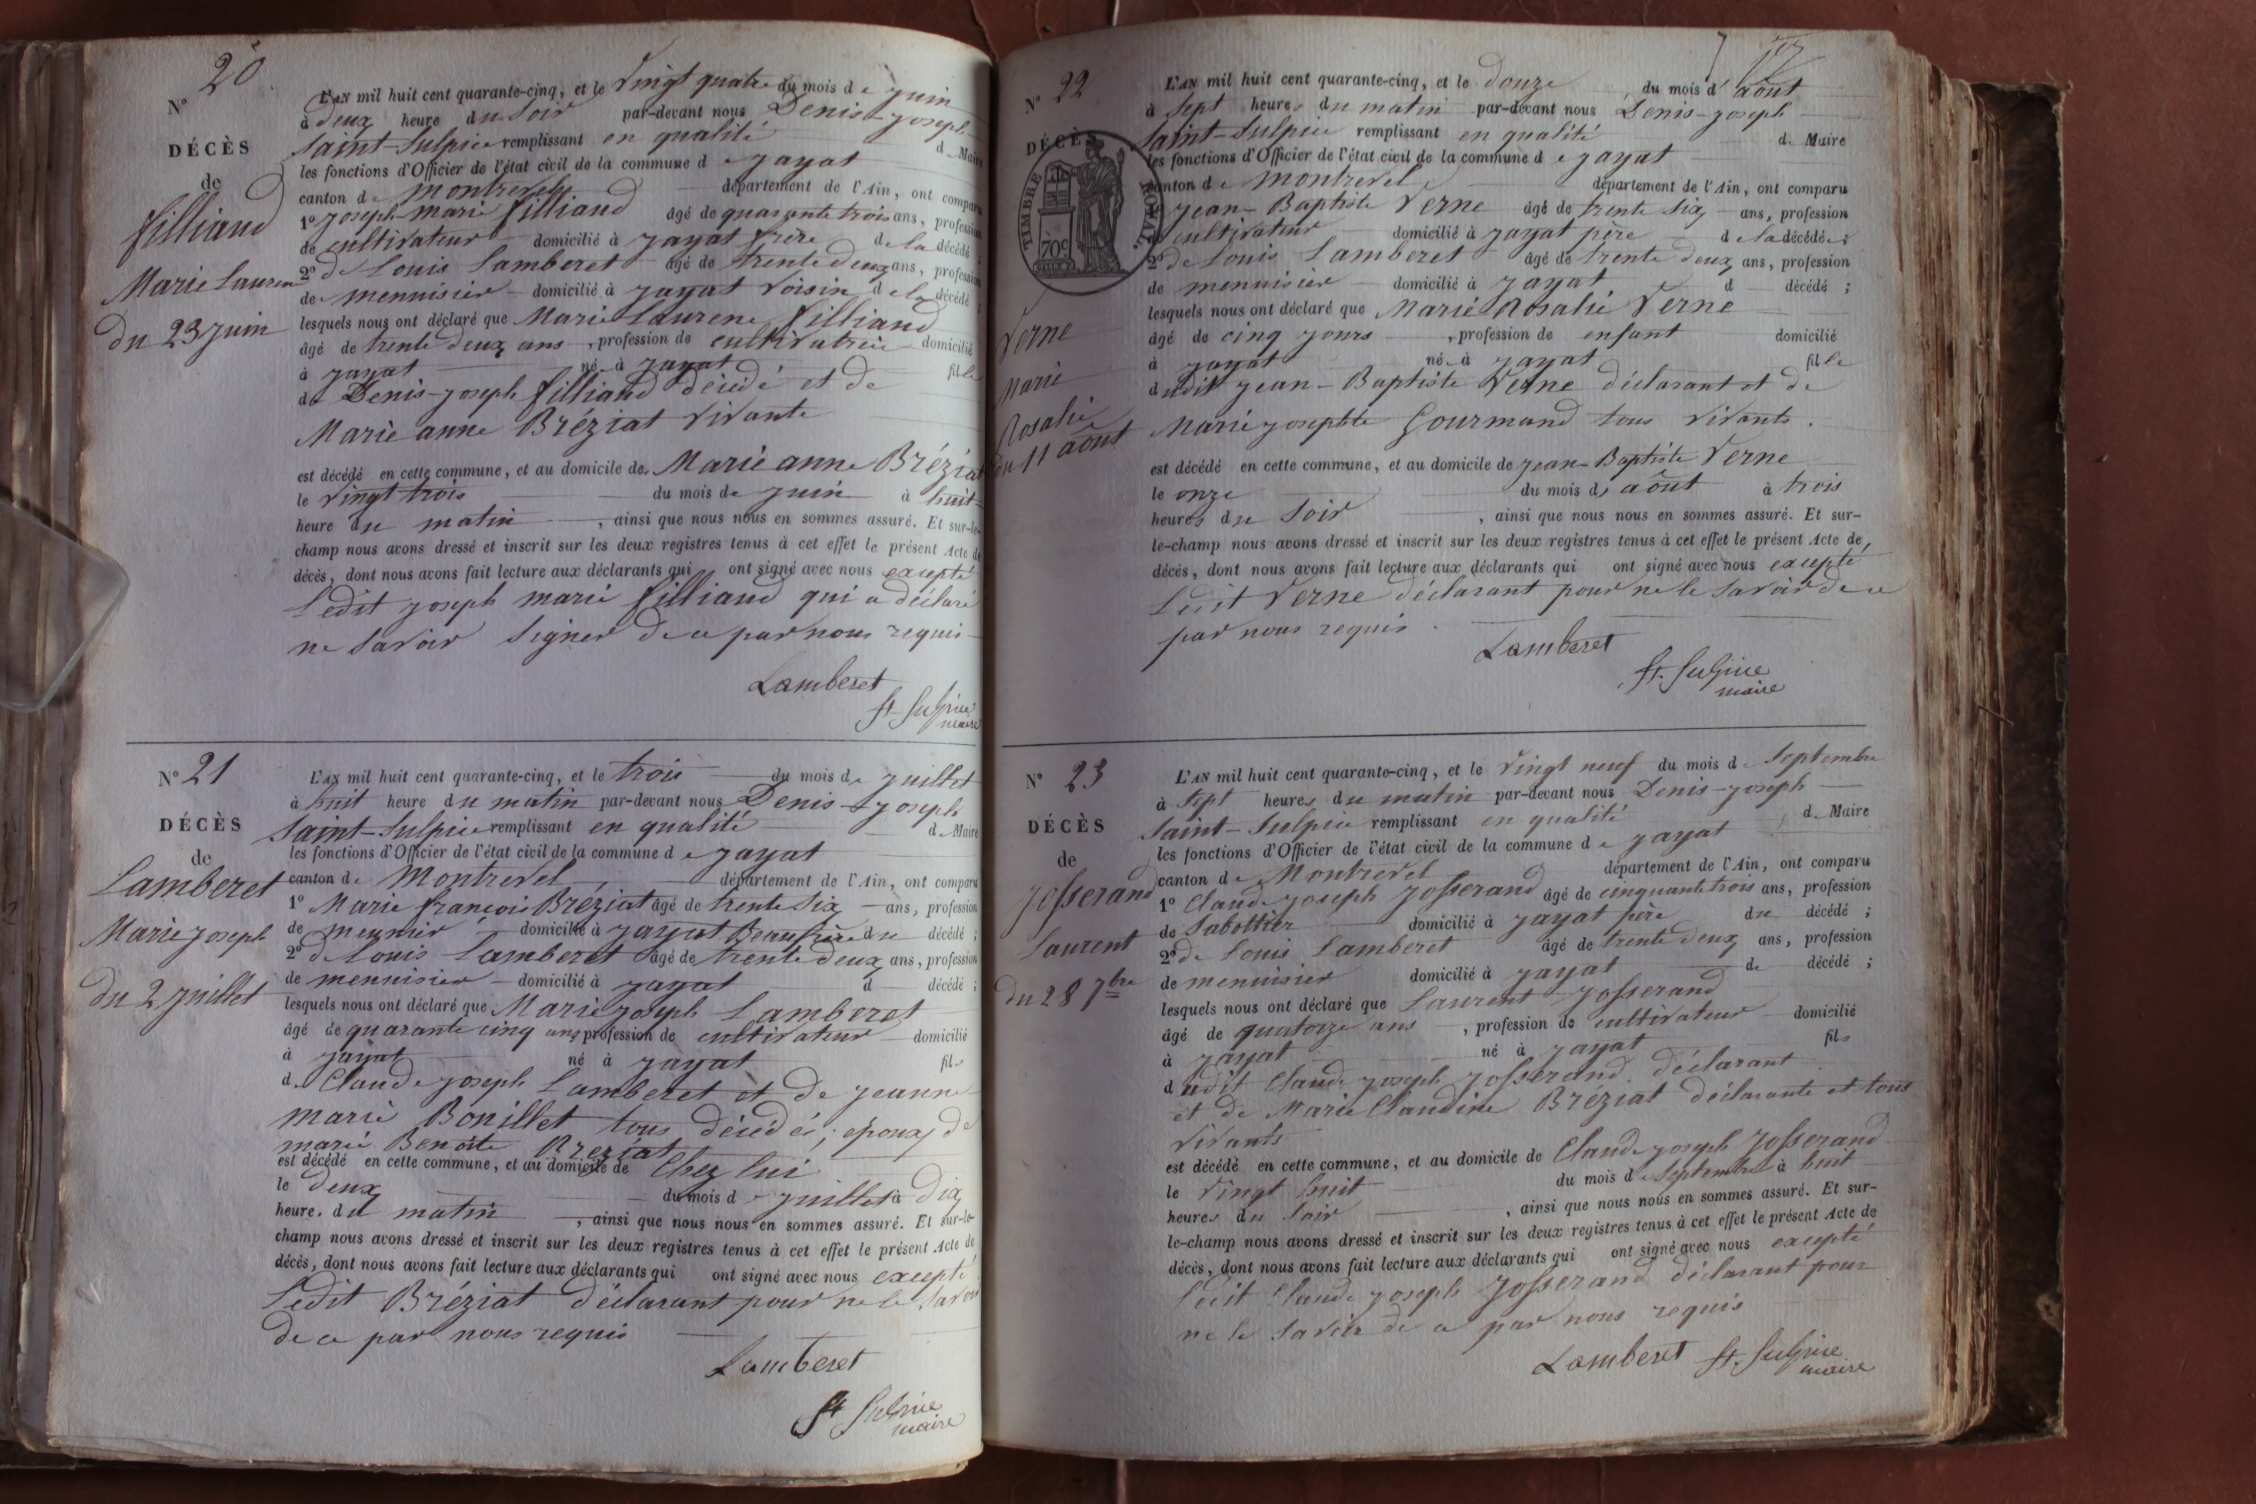 N° 20
DÉCÈS
de
Filliand
Marie Laurene
du 23 juin
L'AN mil huit cent quarante-cinq, et le vingt quatre du mois de juin
à deux heure du soir par-devant nous Denis-joseph
Saint-Sulpice remplissant en qualité de Maire
les fonctions d'Officier de l'état civil de la commune de jayat
canton de montrevel département de l'Ain, ont comparu
1° joseph-marie filliand âgé de quarante trois ans, profession
de cultivateur domicilié à jayat frère de la décédé ;
2° de Louis Lamberet âgé de trente deux ans, profession
de mennisier domicilié à jayat voisin de la décédé ;
lesquels nous ont déclaré que Marie Laurene filliand
âgé de trente deux ans, profession de cultivatrice domicilié
à jayat né à jayat fille
de Denis-joseph filliand décédé et de
Marie anne Bréziat vivante
est décédé en cette commune, et au domicile de Marie anne Bréziat
le vingt trois du mois de juin à huit
heure du matin, ainsi que nous nous en sommes assuré. Et sur-le-
champ nous avons dressé et inscrit sur les deux registres tenus à cet effet le présent Acte de
décès, dont nous avons fait lecture aux déclarants qui ont signé avec nous excepté
Ledit joseph marie filliand qui a déclaré
ne savoir signer de ce par nous requis
Lamberet
St Sulpice
maire
N° 21
DÉCÈS
de
Lamberet
Marie joseph
du 2 juillet
L'AN mil huit cent quarante-cinq, et le trois du mois de juillet
à huit heure du matin par-devant nous Denis-joseph
Saint-Sulpice remplissant en qualité de Maire
les fonctions d'Officier de l'état civil de la commune de jayat
canton de Montrevel département de l'Ain, ont comparu
1° Marie françois Bréziat âgé de trente six ans, profession
de meunier domicilié à jayat Beaufrère du décédé ;
2° de Louis Lamberet âgé de trente deux ans, profession
de mennisier domicilié à jayat d décédé ;
lesquels nous ont déclaré que Marie joseph Lamberet
âgé de quarante cinq ans, profession de cultivateur domicilié
à jayat né à jayat fils
de Claude joseph Lamberet et de jeanne
marie Bonillet tous décédés ; époux de
marie Benoite Breziat
est décédé en cette commune, et au domicile de Chez lui
le deux du mois de juillet à dix
heure du matin, ainsi que nous nous en sommes assuré. Et sur-le-
champ nous avons dressé et inscrit sur les deux registres tenus à cet effet le présent Acte de
décès, dont nous avons fait lecture aux déclarants qui ont signé avec nous excepté
Ledit Bréziat déclarant pour ne le savoir
de ce par nous requis
Lamberet
St Sulpice
maire
N° 22
DÉCÈS
TIMBRE ROYAL
70c
Verne
Marie
Rosalie
du 11 août
L'AN mil huit cent quarante-cinq, et le douze du mois d'août
à sept heures du matin par-devant nous Denis-joseph
Saint-Sulpice remplissant en qualité de Maire
les fonctions d'Officier de l'état civil de la commune de jayat
canton de montrevel département de l'Ain, ont comparu
jean-Baptiste Verne âgé de trente six ans, profession
cultivateur domicilié à jayat père de la décédée ;
2° de Louis Lamberet âgé de trente deux ans, profession
de mennisier domicilié à jayat d décédé ;
lesquels nous ont déclaré que Marie Rosalie Verne
âgé de cinq jours, profession de enfant domicilié
à jayat née à jayat fille
dudit jean-Baptiste Verne déclarant et de
Marie josephte Gourmand tous vivants.
est décédé en cette commune, et au domicile de jean-Baptiste Verne
le onze du mois d'août à trois
heures du soir, ainsi que nous nous en sommes assuré. Et sur-
le-champ nous avons dressé et inscrit sur les deux registres tenus à cet effet le présent Acte de
décès, dont nous avons fait lecture aux déclarants qui ont signé avec nous excepté
Ledit Verne déclarant pour ne le savoir de ce
par nous requis.
Lamberet
St. Sulpice
maire
N° 23
DÉCÈS
de
Josserand
Laurent
du 28 7bre
L'AN mil huit cent quarante-cinq, et le vingt neuf du mois de Septembre
à sept heures du matin par-devant nous Denis-joseph
Saint-Sulpice remplissant en qualité de Maire
les fonctions d'Officier de l'état civil de la commune de jayat
canton de Montrevel département de l'Ain, ont comparu
1° Claude joseph Josserand âgé de cinquante trois ans, profession
de Sabottier domicilié à jayat père du décédé ;
2° de Louis Lamberet âgé de trente deux ans, profession
de mennisier domicilié à jayat de décédé ;
lesquels nous ont déclaré que Laurent Josserand
âgé de quatorze ans, profession de cultivateur domicilié
à jayat né à jayat fils
dudit Claude joseph Josserand déclarant
et de Marie Claudine Bréziat déclarante et tous
vivants
est décédé en cette commune, et au domicile de Claude joseph Josserand
le vingt huit du mois de Septembre à huit
heures du soir, ainsi que nous nous en sommes assuré. Et sur-
le-champ nous avons dressé et inscrit sur les deux registres tenus à cet effet le présent Acte de
décès, dont nous avons fait lecture aux déclarants qui ont signé avec nous excepté
Ledit Claude joseph Josserand déclarant pour
ne le savoir de ce par nous requis
Lamberet St. Sulpice
maire